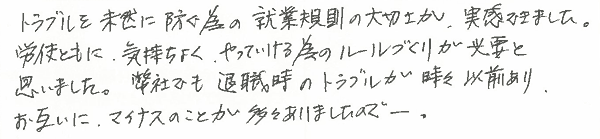 トラブルを未然に防ぐ為の就業規則の大切さが、実感できました。
労使ともに、気持ちよく、やっていける為のルールづくりが必要と
思いました。弊社でも退職時のトラブルが時々以前あり、
お互いに、マイナスのことが多々ありましたので―。